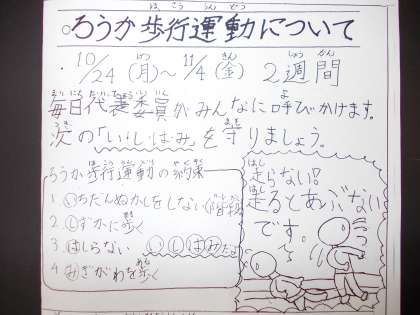 ろうか歩行運動について
10/24(月)～11/4(金) 2週間
毎日代表委員がみんなに呼びかけます。
次の「いしはみ」を守りましょう。
ろうか歩行運動の約束
1. いちだんぬかしをしない(階段)
2. しずかに歩く
3. はしらない いしはみだよ
4. みぎがわを歩く
走らない!
走るとあぶない
です。